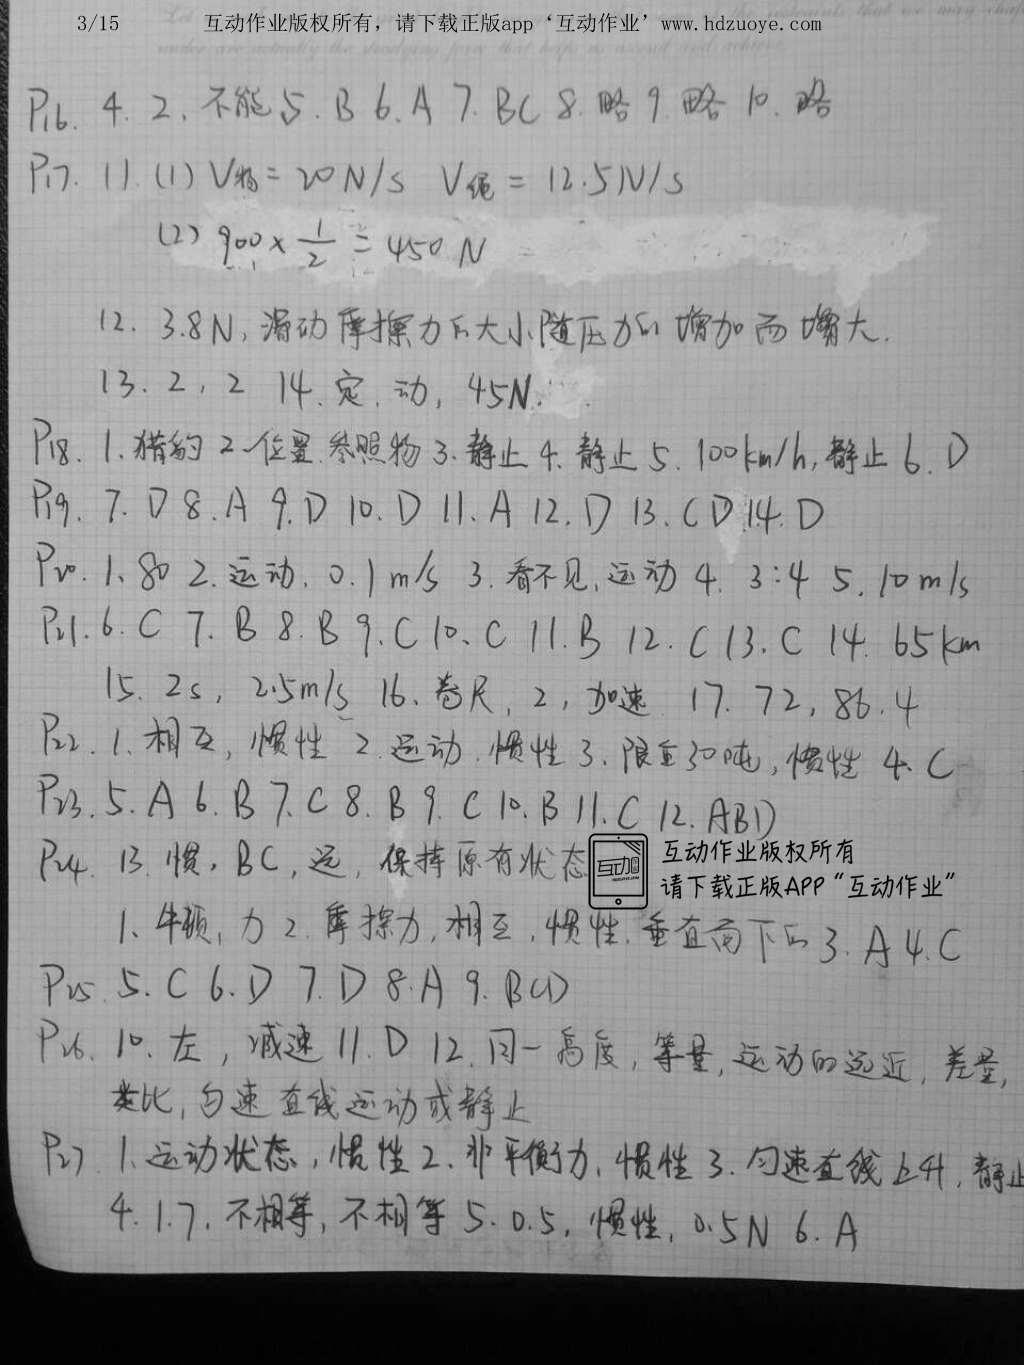 3/15 互动作业版权所有，请下载正版app‘互动作业’www.hdzuoye.com
P16. 4. 2, 不能 5. B 6. A 7. BC 8. 略 9. 略 10. 略
P17. 11. (1) V物=20N/s V绳=12.5N/s
(2) 900×1/2=450N
12. 3.8N, 滑动摩擦力的大小随压力的增加而增大.
13. 2, 2 14. 定, 动, 45N.
P18. 1. 猎豹 2. 位置 参照物 3. 静止 4. 静止 5. 100km/h, 静止 6. D
P19. 7. D 8. A 9. D 10. D 11. A 12. D 13. CD 14. D
P20. 1. 80 2. 运动, 0.1m/s 3. 看不见, 运动 4. 3:4 5. 10m/s
P21. 6. C 7. B 8. B 9. C 10. C 11. B 12. C 13. C 14. 65km
15. 2s, 2.5m/s 16. 卷尺, 2, 加速 17. 72, 86.4
P22. 1. 相互, 惯性 2. 运动, 惯性 3. 限重30吨, 惯性 4. C
P23. 5. A 6. B 7. C 8. B 9. C 10. B 11. C 12. ABD
P24. 13. 惯, BC, 远, 保持原有状态
互动作业版权所有
请下载正版APP“互动作业”
互动
1. 牛顿, 力 2. 摩擦力, 相互, 惯性, 垂直向下的 3. A 4. C
P25. 5. C 6. D 7. D 8. A 9. BCD
P26. 10. 左, 减速 11. D 12. 同一高度, 等量, 运动的远近, 差量,
类比, 匀速直线运动或静止
P27 1. 运动状态, 惯性 2. 非平衡力, 惯性 3. 匀速直线上升, 静止
4. 1.7, 不相等, 不相等 5. 0.5, 惯性, 0.5N 6. A